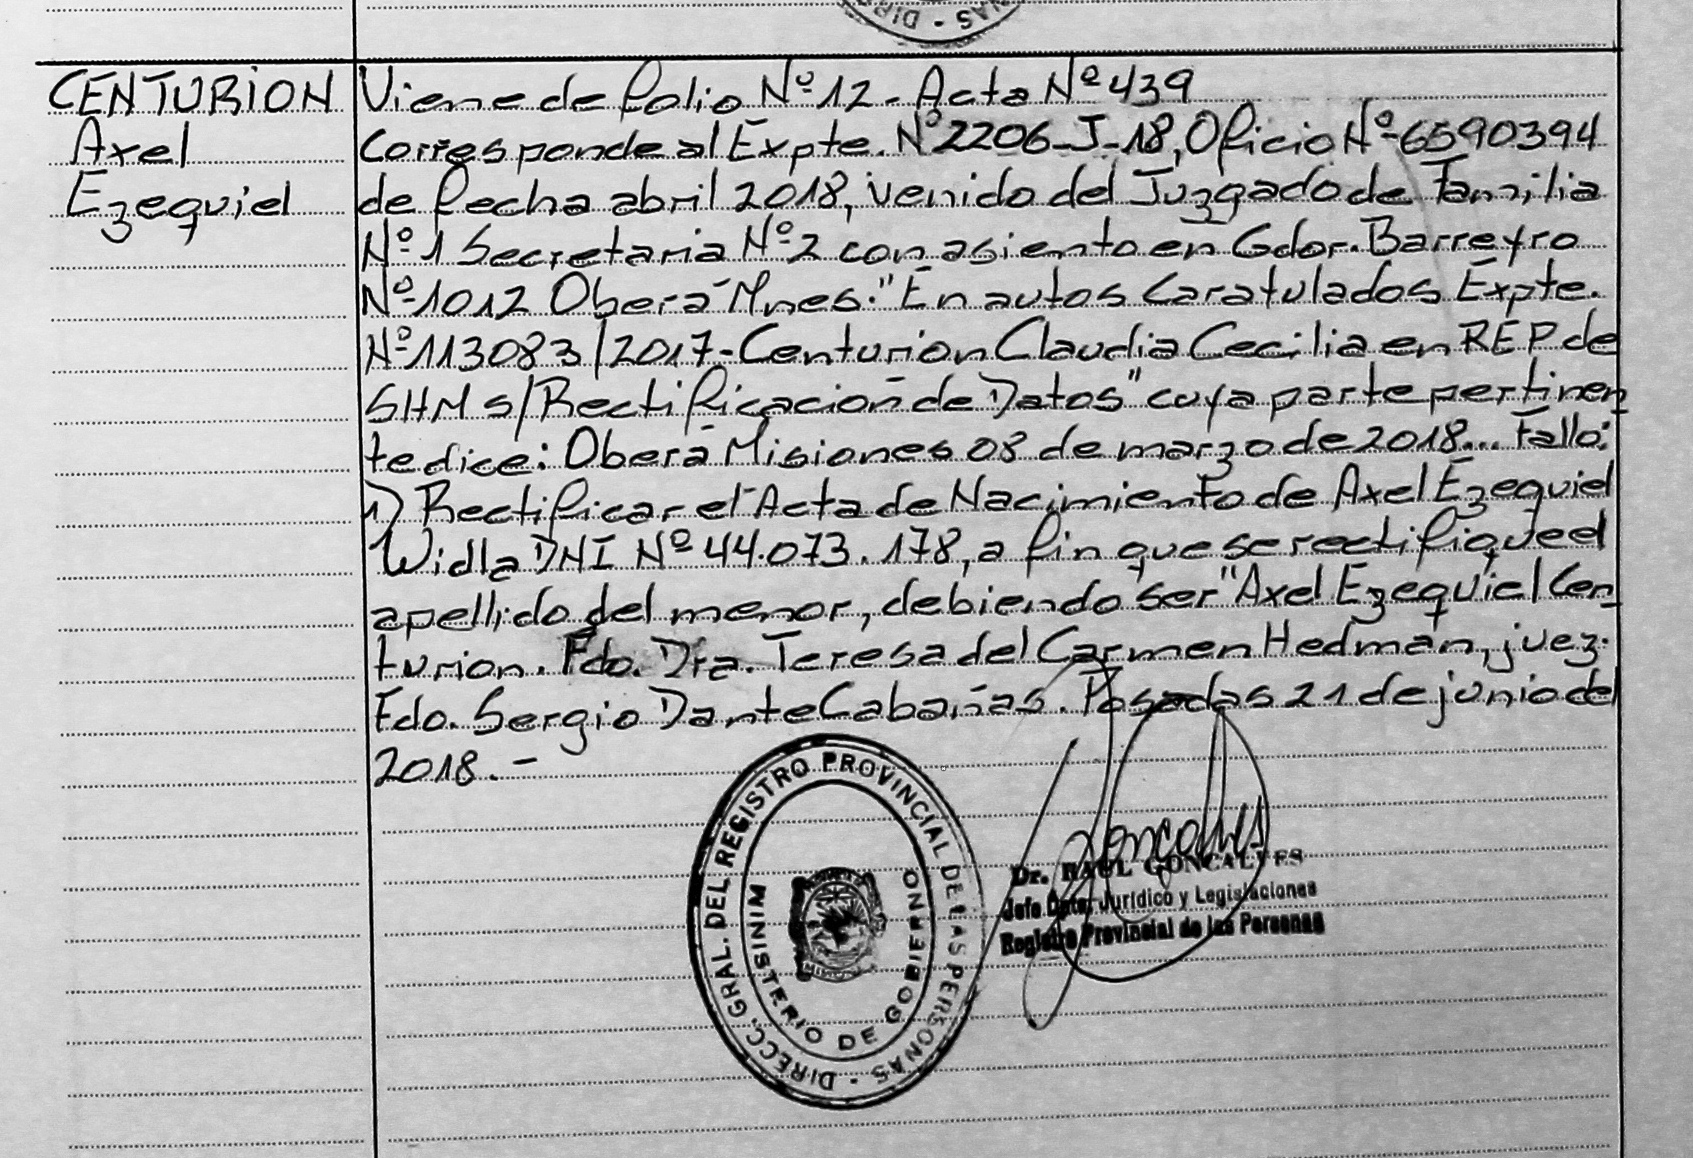 CENTURION
Axel
Ezequiel
Viene de folio Nº 12 - Acta Nº 439
Corresponde al Expte. Nº 2206-J-18, Oficio Nº 6590394
de fecha abril 2018, venido del Juzgado de Familia
Nº 1 Secretaria Nº 2 con asiento en Gdor. Barreyro
Nº 1012 Oberá Mnes. "En autos Caratulados Expte.
Nº 113083/2017-Centurion Claudia Cecilia en REP de
SHM s/Rectificación de Datos" cuya parte pertinen
te dice: Oberá Misiones 08 de marzo de 2018... Fallo:
1) Rectificar el Acta de Nacimiento de Axel Ezequiel
Widla DNI Nº 44.073.178, a fin que se rectifique el
apellido del menor, debiendo ser "Axel Ezequiel Cen
turion. Fdo. Dra. Teresa del Carmen Hedman, juez.
Fdo. Sergio Dante Cabañas. Posadas 21 de junio del
2018.-
DIRECC. GRAL. DEL REGISTRO PROVINCIAL DE LAS PERSONAS -
MINISTERIO DE GOBIERNO
MISIONES
Dr. RAUL GONCALVES
Jefe Dpto. Jurídico y Legislaciones
Registro Provincial de las Personas